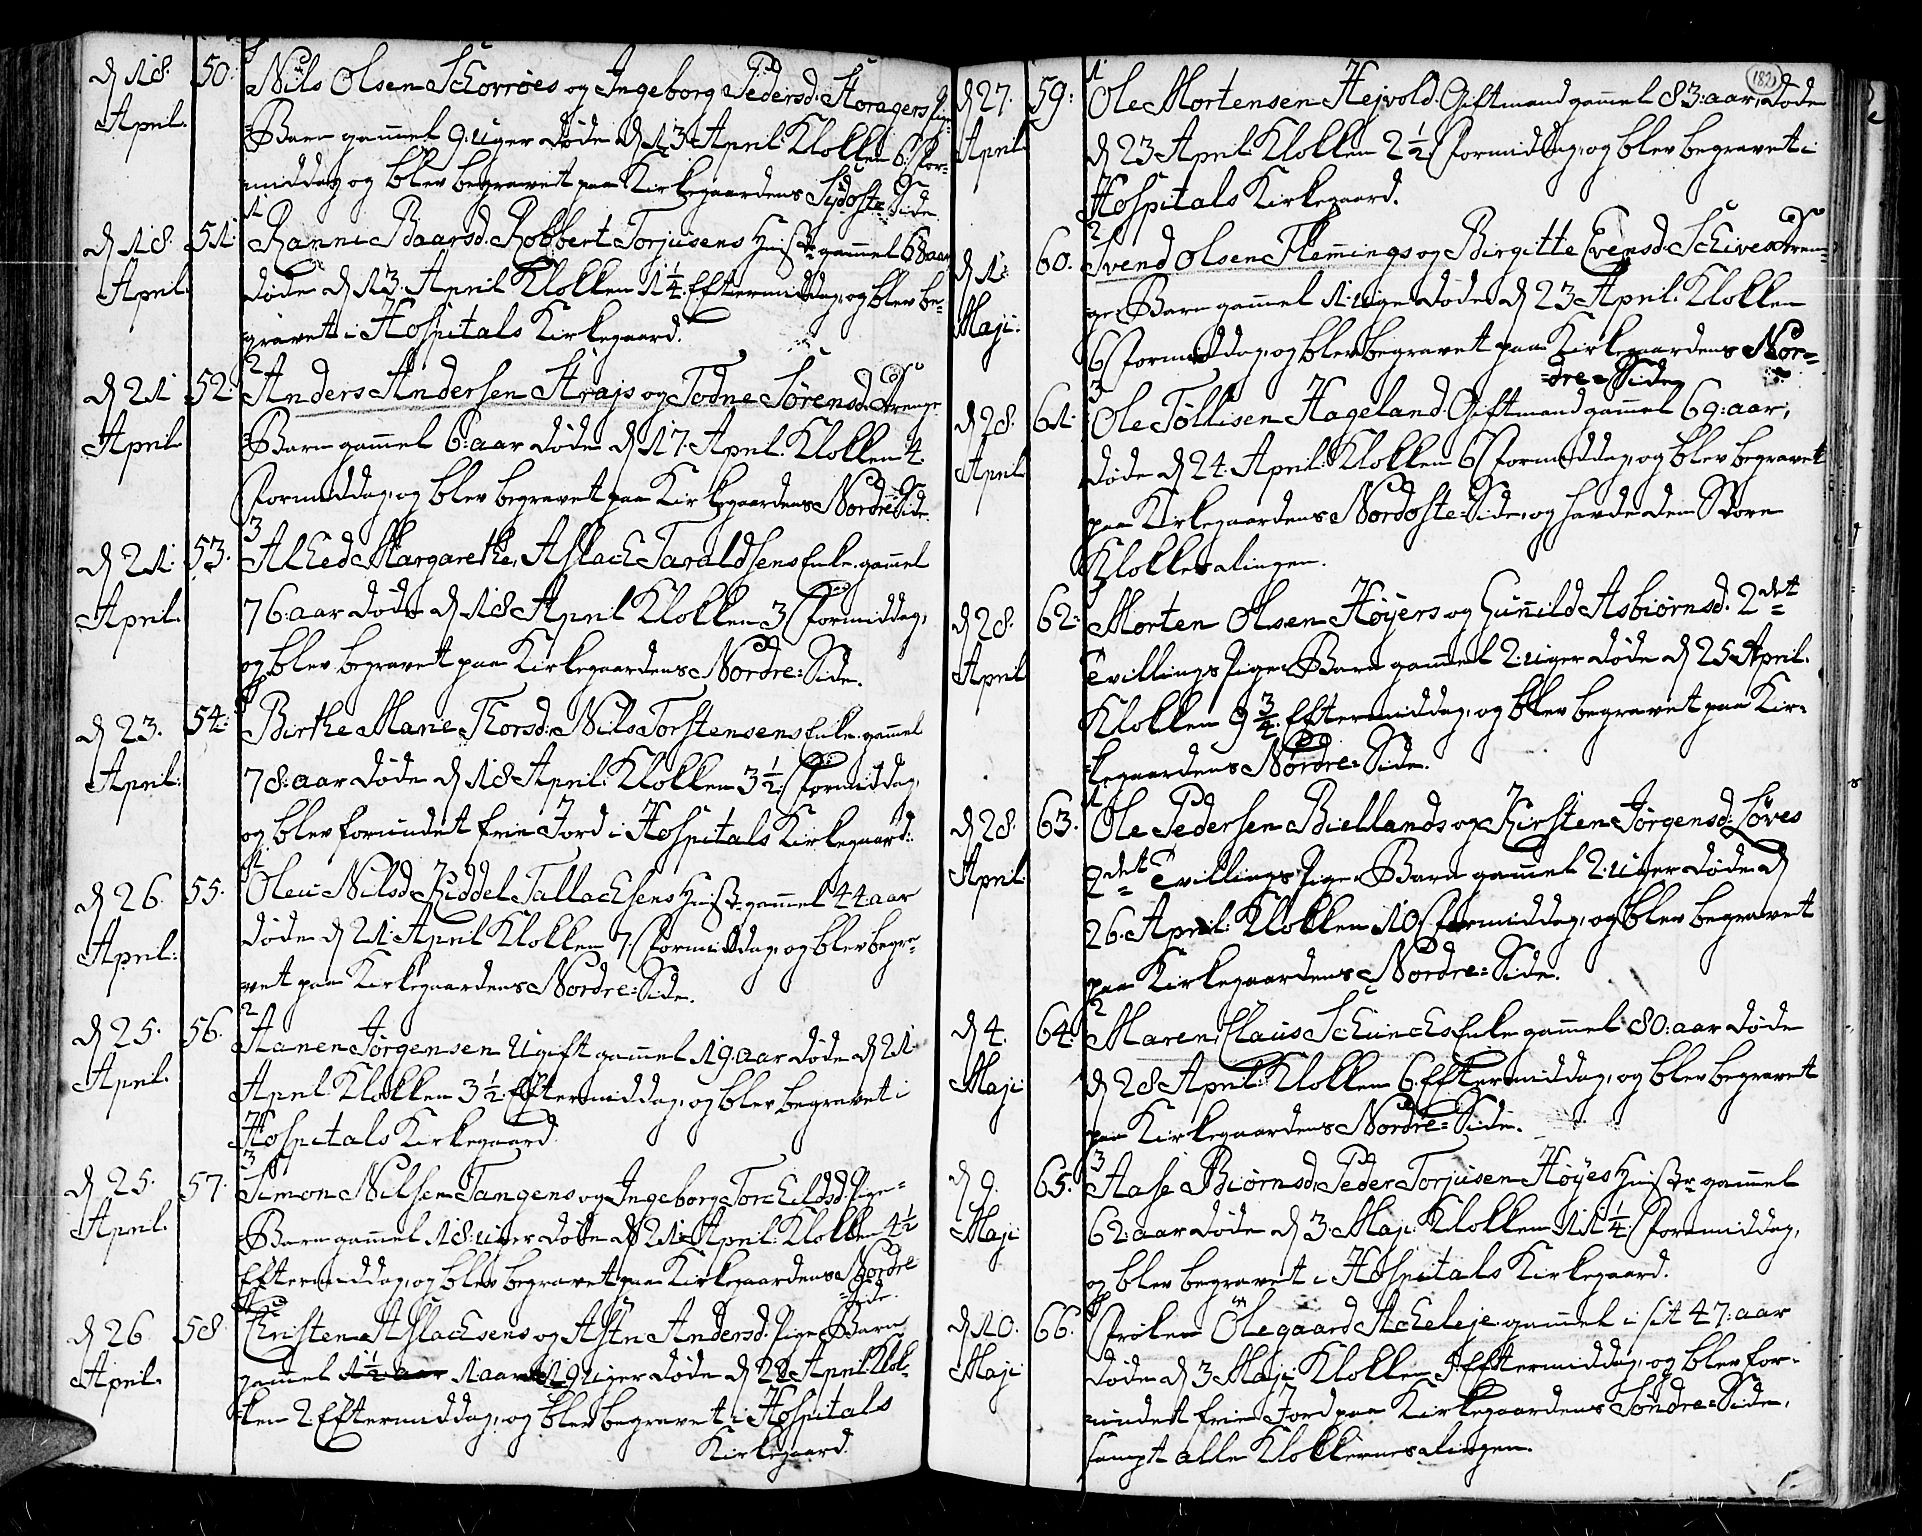 d 18. April. 50: Nils Olsen Schorröes og Ingeborg Pedersd. Storagers Pige
Barn gammel 9. uger døde d 13 April Klokken 6. For-
middag og blev begravet paa Kirkegaardens Sydoste Side.
1
d 18. April. 51: Ranni Baarsd. Robbert Torjusens Hust: gammel 68 aar
døde d 13. April Klokken 1¼. Eftermiddag, og blev be-
gravet i Hospitals Kirkegaard.
2
d 21 April 52: Anders Andersen Strajs og Todne Sørensd. Drenge
Barn gammel 6: aar døde d 17. April. Klokken 4.
Formiddag, og blev begravet paa Kirkegaardens Nordre Side.
3
d 21. April. 53. Alhed Margarethe, Aslach Taraldsens Enke gammel
76 aar døde d 18 April Klokken 3 Formiddag,
og blev begravet paa Kirkegaardens Nordre=Side.
d 23. April. 54: Birthe Marie Thorsd: Nils Torstensens Enke gammel
78: aar døde d 18 April: Klokken 3½ Formiddag,
og blev forundet frie Jord i Hospitals Kirkegaard:
1
d 26. April. 55. Oleu Nilsd. Kiddel Tallachsens Hust: gammel 44 aar
døde d 21 April Klokken 7. Formiddag, og blev begra-
vet paa Kirkegaardens Nordre=Side.
2
d 25. April. 56. Hanen Jørgensen Ugift gammel 19. aar døde d 21
April Klokken 3½. Eftermiddag, og blev begravet i
Hospitals Kirkegaard
3
d 25. April. 57. Simon Nilsen Tangens og Ingeborg Torchildsd. Pige-
Barn gammel 18: uger døde d 21 April Klokken 4½
Eftermiddag, og blev begravet paa Kirkegaardens Nordre
=Side.
d 26 April. 58. Christen Aslachsens og Astri Andersd. Pige Barn
gammel 1½ aar 1 aar 19 uger døde d 22 April Klok-
ken 2 Eftermiddag, og blev begravet i Hospitals
Kirkegaard.
182
1
d 27. April 59: Ole Mortensen Hejvold. Giftmand gammel 83: aar, døde
d 23 April: Klokken 2½ Formiddag, og blev begravet i
Hospitals Kirkegaard.
2
d 1. Maji: 60. Svend Olsen Flemmings og Birgitte Evensd: Schives Dren-
ge Barn gammel 1. uge døde d 23 April. Klokken
6 Formiddag, og blev begravet paa Kirkegaardens Nor-
=dre=Side.
3
d 28. April. 61. Ole Tollisen Hageland. Giftmand gammel 69: aar,
døde d 24. April Klokken 6 Formiddag, og blev begravet
paa Kirkegaardens Nordoste=Side, og havde den Store
Klokkes alingen.
d 28. April 62: Morten Olsen Høyers og Gunnild Asbiørnsd. 2det
Tvillings Pige Barn gammel 2. uger døde d 25 April.
Klokken 9¾ Eftermiddag, og blev begravet paa Kir-
kegaardens Nordre=Side.
1
d 28. April. 63. Ole Pedersen Biellands og Kirsten Jørgensd: Løves
2det Tvillings Pige Barn gammel 2. uger døde d
26. April: Klokken 10 Formiddag, og blev begravet
paa Kirkegaardens Nordre=Side.
2
d 4. Maji 64. Maren, Claus Schuncks Enke gammel 80: aar døde
d 28 April: Klokken 6. Eftermiddag, og blev begravet
paa Kirkegaardens Nordre=Side.
3
d 9. Maji 65. Aase Biørnsd. Peder Torjusen Høyes Hustr: gammel
62: aar døde d 3. Maji Klokken 11¼. Formiddag,
og blev begravet i Hospitals Kirkegaard.
d 10. Maji 66. Frøken Ölegaard Acheleje gammel i sit 47: aar
døde d 3 Maji Klokken Eftermiddag, og blev for-
undet frie Jord paa Kirkegaardens Søndre=Side,
sampt alle Klokkernes alingen.